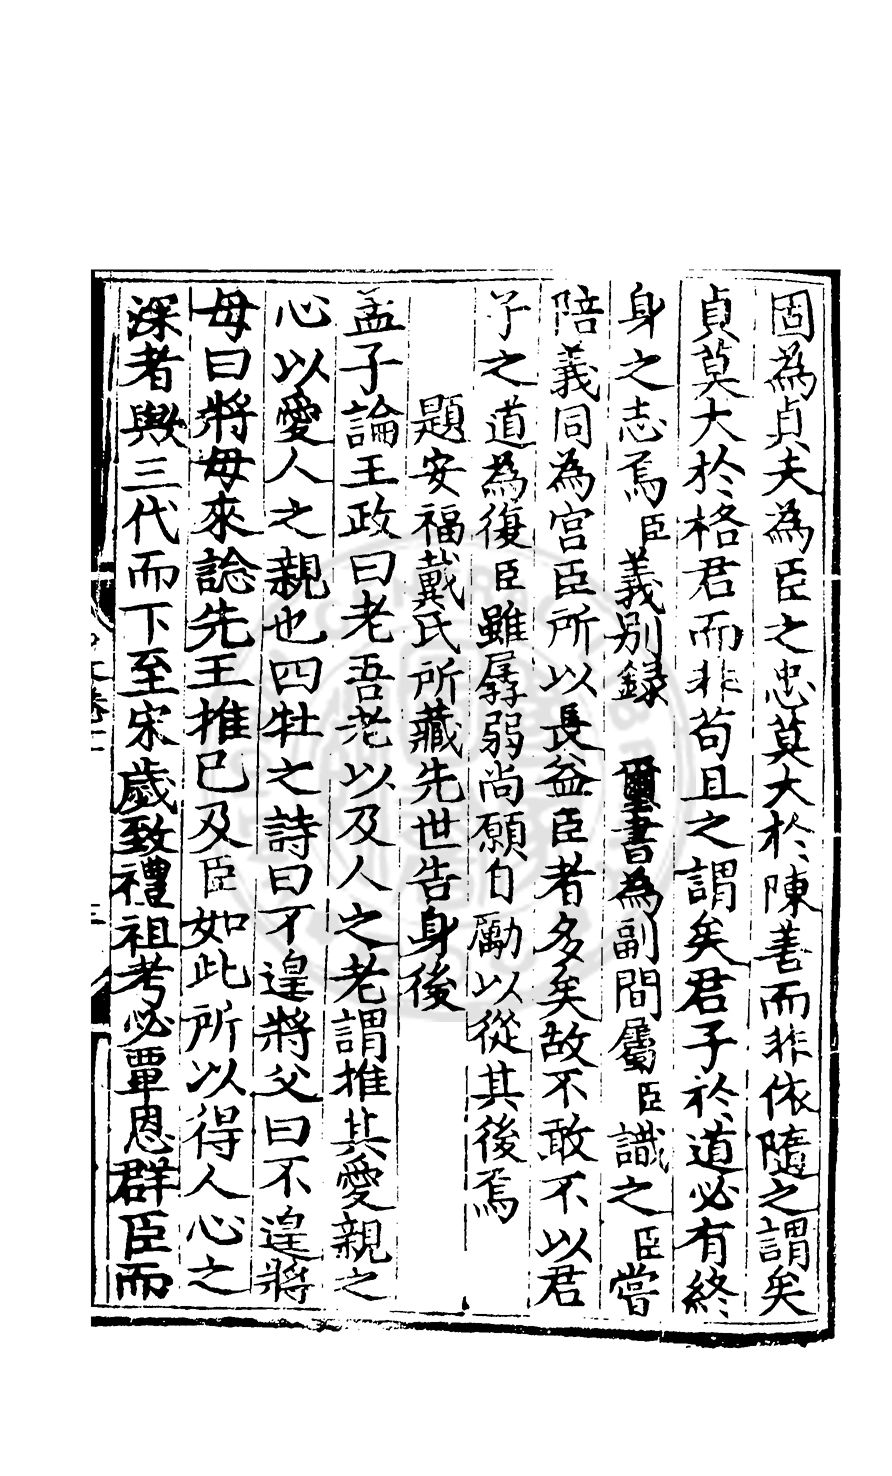 固為貞夫為臣之忠莫大於陳善而非依隨之謂矣
貞莫大於格君而非苟且之謂矣君子於道必有終
身之志焉臣義別錄　璽書為副間屬臣識之臣嘗
陪義同為宮臣所以長益臣者多矣故不敢不以君
子之道為復臣雖孱弱尚願自勵以從其後焉
題安福戴氏所藏先世告身後
孟子論王政曰老吾老以及人之老謂推其愛親之
心以愛人之親也四牡之詩曰不遑將父曰不遑將
母曰將母來諗先王推己及臣如此所以得人心之
深者歟三代而下至宋歲致禮祖考必覃恩群臣而